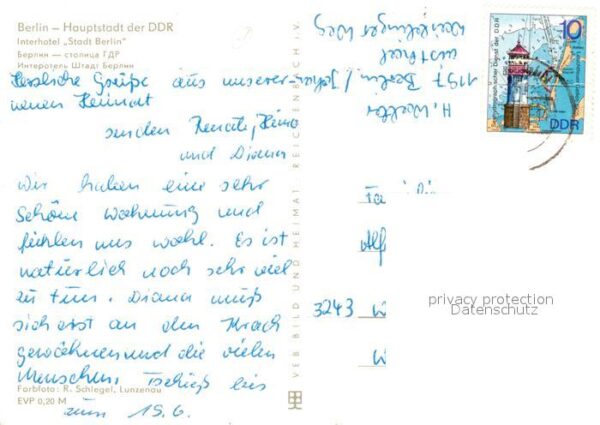 Berlin – Hauptstadt der DDR
Interhotel „Stadt Berlin"
Берлин — столица ГДР
Интеротель Штадт Берлин
Herzliche Grüße aus unserer
neuen Heimat
senden Renate, Heino
und Diana
Wir haben eine sehr
schöne Wohnung und
fühlen uns wohl. Es ist
natürlich noch sehr viel
zu tun. Diana muß
sich erst an den Krach
gewöhnen und die vielen
Menschen. Tschüß bis
zum 19.6.
Farbfoto: R. Schlegel, Lunzenau
EVP 0,20 M
VEB BILD UND HEIMAT REICHENBACH I. V.
H.
1197 Berlin /
10
DDR
Fa
Alf
3243 W
W
privacy protection
Datenschutz